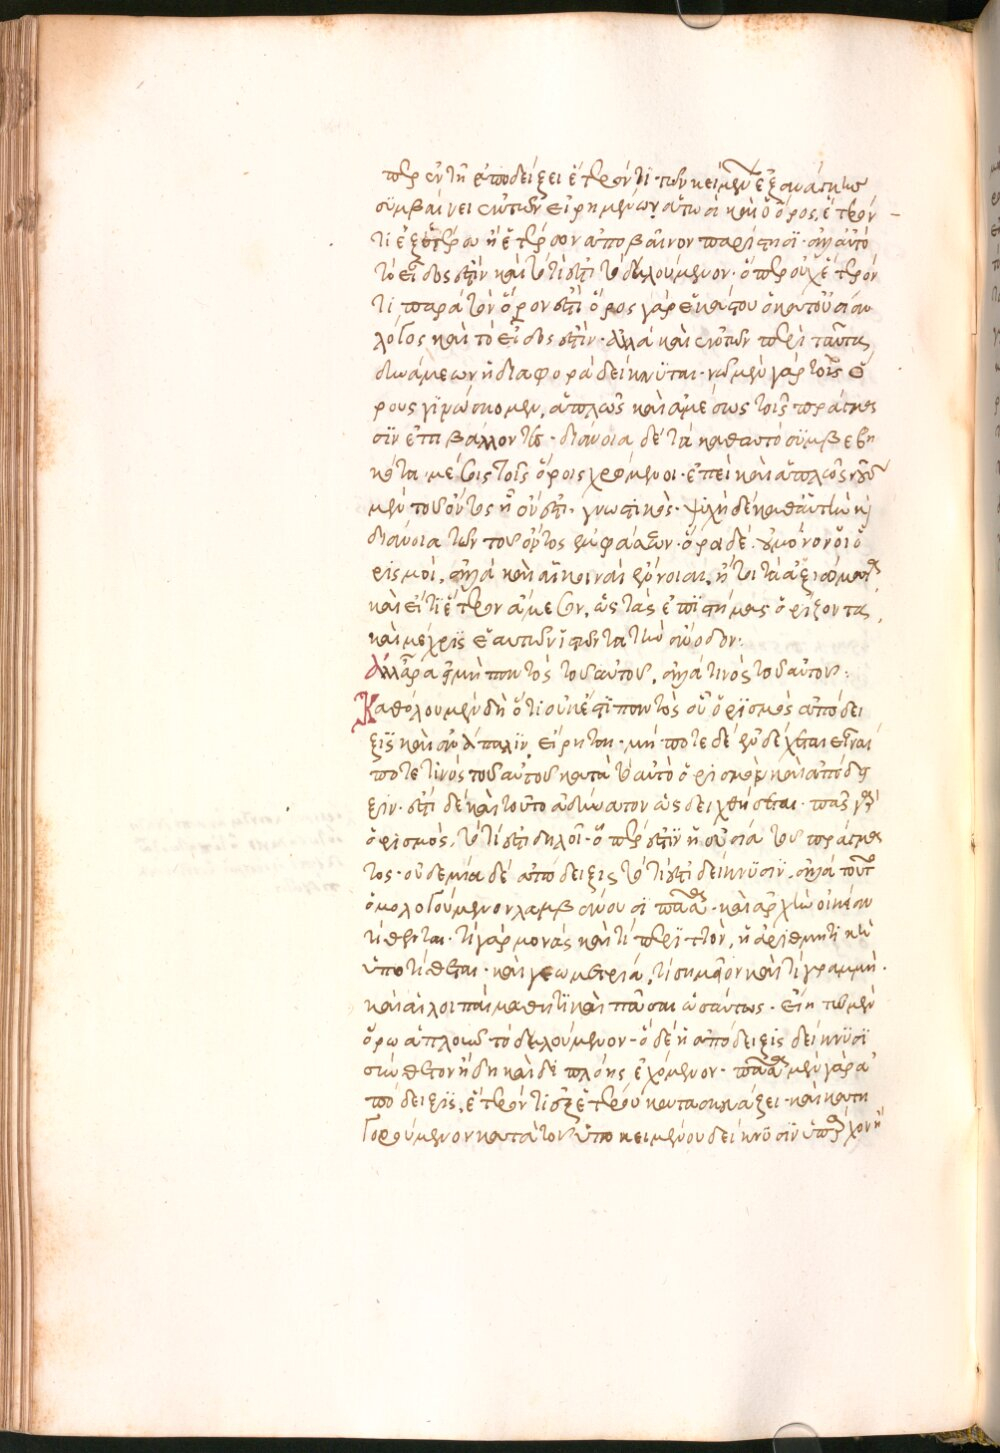 περ ἐν τῇ ἀποδείξει ἕτερόν τι τῶν κειμένων ἐξ ἀνάγκης
συμβαίνει ἐκ τῶν εἰρημένων, οὕτωσὶ καὶ ὁ ὅρος, ἕτερόν
τι ἐξ ἑτέρου ἢ ἕτερον ἀποβαῖνον παρίστησι· ἀλλ' αὐτὸ
τὸ εἶδός ἐστιν καὶ τὸ τί ἐστι τὸ δηλούμενον· ὅπερ οὐχ ἕτερόν
τι παρὰ τὸν ὅρον ἐστί· ὅρος γὰρ ἑκάστου ὁ κατ' οὐσίαν
λόγος καὶ τὸ εἶδός ἐστιν· ἀλλὰ καὶ ἐκ τῶν περὶ ταῦτα
δυνάμεων ἡ διαφορὰ δείκνυται· νῷ μὲν γὰρ τοὺς ὅ
ρους γινώσκομεν, ἁπλῶς καὶ ἀμέσως τοῖς πράγμα
σιν ἐπιβάλλοντες· διάνοια δὲ τὰ καθ' αὑτὸ συμβεβη
κότα μέσοις τοῖς ὅροις χρώμενοι· ἐπεὶ καὶ ἁπλῶς νοῦ
μὲν τοῦ ὄντος ᾗ ὄν ἐστι γνωστικός· ψυχὴ δὲ καθ' αὑτὴν καὶ
διάνοια τῶν τοῦ ὄντος ἐμφάσεων· ὅρα δέ· οὐ μόνον οἱ ὁ
ρισμοὶ, ἀλλὰ καὶ αἱ κοιναὶ ἔννοιαι, ἤτοι τὰ ἀξιώματα
καὶ εἴ τι ἕτερον ἄμεσον, ὡς τὰς ἐπιστήμας ὁρίζοντας,
καὶ μέχρις ἑαυτῶν ἱστῶντα τὴν ἄνοδον:
Ἀλλ' ἆρα εἰ μὴ παντὸς τοῦ αὐτοῦ, ἀλλὰ τινὸς τοῦ αὐτοῦ:
Καθόλου μὲν δὴ ὅτι οὐκ ἔστι παντὸς οὗ ὁρισμὸς ἀπόδει
ξις καὶ ἀνάπαλιν, εἴρηται· μή ποτε δὲ ἐνδέχεται εἶναί
ποτε τινὸς τοῦ αὐτοῦ κατὰ τὸ αὐτὸ ὁρισμὸν καὶ ἀπόδει
ξιν· ἔστι δὲ καὶ τοῦτο ἀδύνατον ὡς δειχθήσεται· πᾶς γὰρ
ὁρισμὸς, τὸ τί ἐστι δηλοῖ· ὅπερ ἐστὶν ἡ οὐσία τοῦ πράγμα
τος· οὐδεμία δὲ ἀπόδειξις τὸ τί ἐστι δείκνυσιν, ἀλλὰ τοῦτο
ὁμολογούμενον λαμβάνουσι πᾶσαι· καὶ ἀρχὴν οἰκείαν
τίθενται· τί γὰρ μονὰς καὶ τί περιττὸν, ἡ ἀριθμητικὴ
ὑποτίθεται· καὶ γεωμετρία, τί σημεῖον καὶ τί γραμμή·
καὶ αἱ λοιπαὶ μαθητικαὶ πᾶσαι ὡσαύτως· ἔτι τῷ μὲν
ὅρῳ ἁπλοῦν τὸ δηλούμενον· ὃ δὲ ἡ ἀπόδειξις δείκνυσι
σύνθετον ἤδη καὶ διπλόης ἐχόμενον· πᾶσα μὲν γὰρ ἀ
πόδειξις, ἕτερόν τι ἐξ ἑτέρου κατασκευάζει· καὶ κατη
γορούμενον κατὰ τοῦ ὑποκειμένου δείκνυσιν ὑπάρχον ἢ